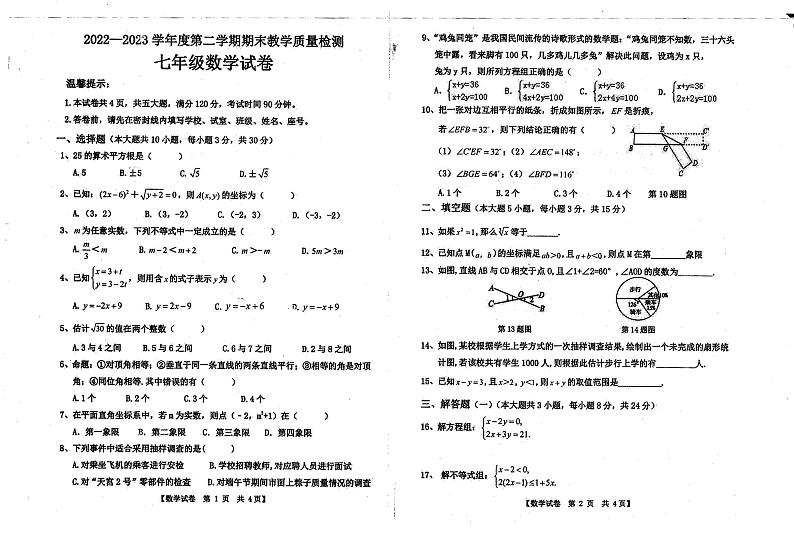 2022—2023 学年度第二学期期末教学质量检测
七年级数学试卷
温馨提示:
1.本试卷共 4 页，共五大题，满分 120 分，考试时间 90 分钟。
2.答卷前，请先在密封线内填写学校、试室、班级、姓名、座号。
一、选择题（本大题共 10 小题，每小题 3 分，共 30 分）
1、25 的算术平方根是（ ）
A.5 B.±5 C.√5 D.±√5
2、已知：(2x-6)²+√(y+2)=0，则 A(x,y) 的坐标为（ ）
A.（3，2） B.（3，-2） C.（-2，3） D.（-3，-2）
3、m 为任意实数，下列不等式中一定成立的是（ ）
A. m/3<m B. m-2<m+2 C. m>-m D. 5m>3m
4、已知{x=3+t y=3-2t，则用含 x 的式子表示 y 为（ ）
A. y=-2x+9 B. y=2x-9 C. y=-x+6 D. y=-x+9
5、估计√30 的值在两个整数（ ）
A.3 与 4 之间 B.5 与 6 之间 C.6 与 7 之间 D.2 与 8 之间
6、命题：①对顶角相等；②垂直于同一条直线的两条直线平行；③相等的角是对顶
角；④同位角相等.其中错误的有（ ）
A.1 个 B.2 个 C.3 个 D.4 个
7、在平面直角坐标系中，若 m 为实数，则点（﹣2，m²+1）在（ ）
A．第一象限 B．第二象限 C．第三象限 D．第四象限
8、下列事件中适合采用抽样调查的是( )
A.对乘坐飞机的乘客进行安检 B.学校招聘教师,对应聘人员进行面试
C.对“天宫 2 号”零部件的检查 D.对端午节期间市面上粽子质量情况的调查
【数学试卷 第 1 页 共 4 页】
9、“鸡兔同笼”是我国民间流传的诗歌形式的数学题：“鸡兔同笼不知数，三十六头
笼中露，看来脚有 100 只，几多鸡儿几多兔”解决此问题，设鸡为 x 只，
兔为 y 只，则所列方程组正确的是（ ）
A.{x+y=36 x+2y=100 B.{x+y=36 4x+2y=100 C.{x+y=36 2x+4y=100 D.{x+y=36 2x+2y=100
10、把一张对边互相平行的纸条，折成如图所示，EF 是折痕，
若∠EFB=32°，则下列结论正确的有（ ）
（1）∠C'EF=32°；（2）∠AEC=148°；
（3）∠BGE=64°；（4）∠BFD=116°
A E C' B G F D' D C
A.1 个 B.2 个 C.3 个 D.4 个 第 10 题图
二、填空题（本大题 5 小题，每小题 3 分，共 15 分）
11、如果 x²=1,那么∛x 等于______.
12、已知点 M(a，b)的坐标满足 ab>0,且 a+b<0,则点 M 在第______象限
13、如图,直线 AB 与 CD 相交于点 O,且∠1+∠2=60°,∠AOD 的度数为______.
A C 1 O 2 D B
步行 其他10% 乘车 15% 126° 骑车
第 13 题图 第 14 题图
14、如图,某校根据学生上学方式的一次抽样调查结果,绘制出一个未完成的扇形统
计图,若该校共有学生 1000 人,则根据此估计步行上学的有______人.
15、已知 x-y=3,且 x>2，y<1,则 x+y 的取值范围是______.
三、解答题（一）（本大题共 3 小题，每小题 8 分，共 24 分）
16、解方程组：{x-2y=0, 2x+3y=21.
17、解不等式组：{x-2<0, 2(2x-1)≤1+5x.
【数学试卷 第 2 页 共 4 页】